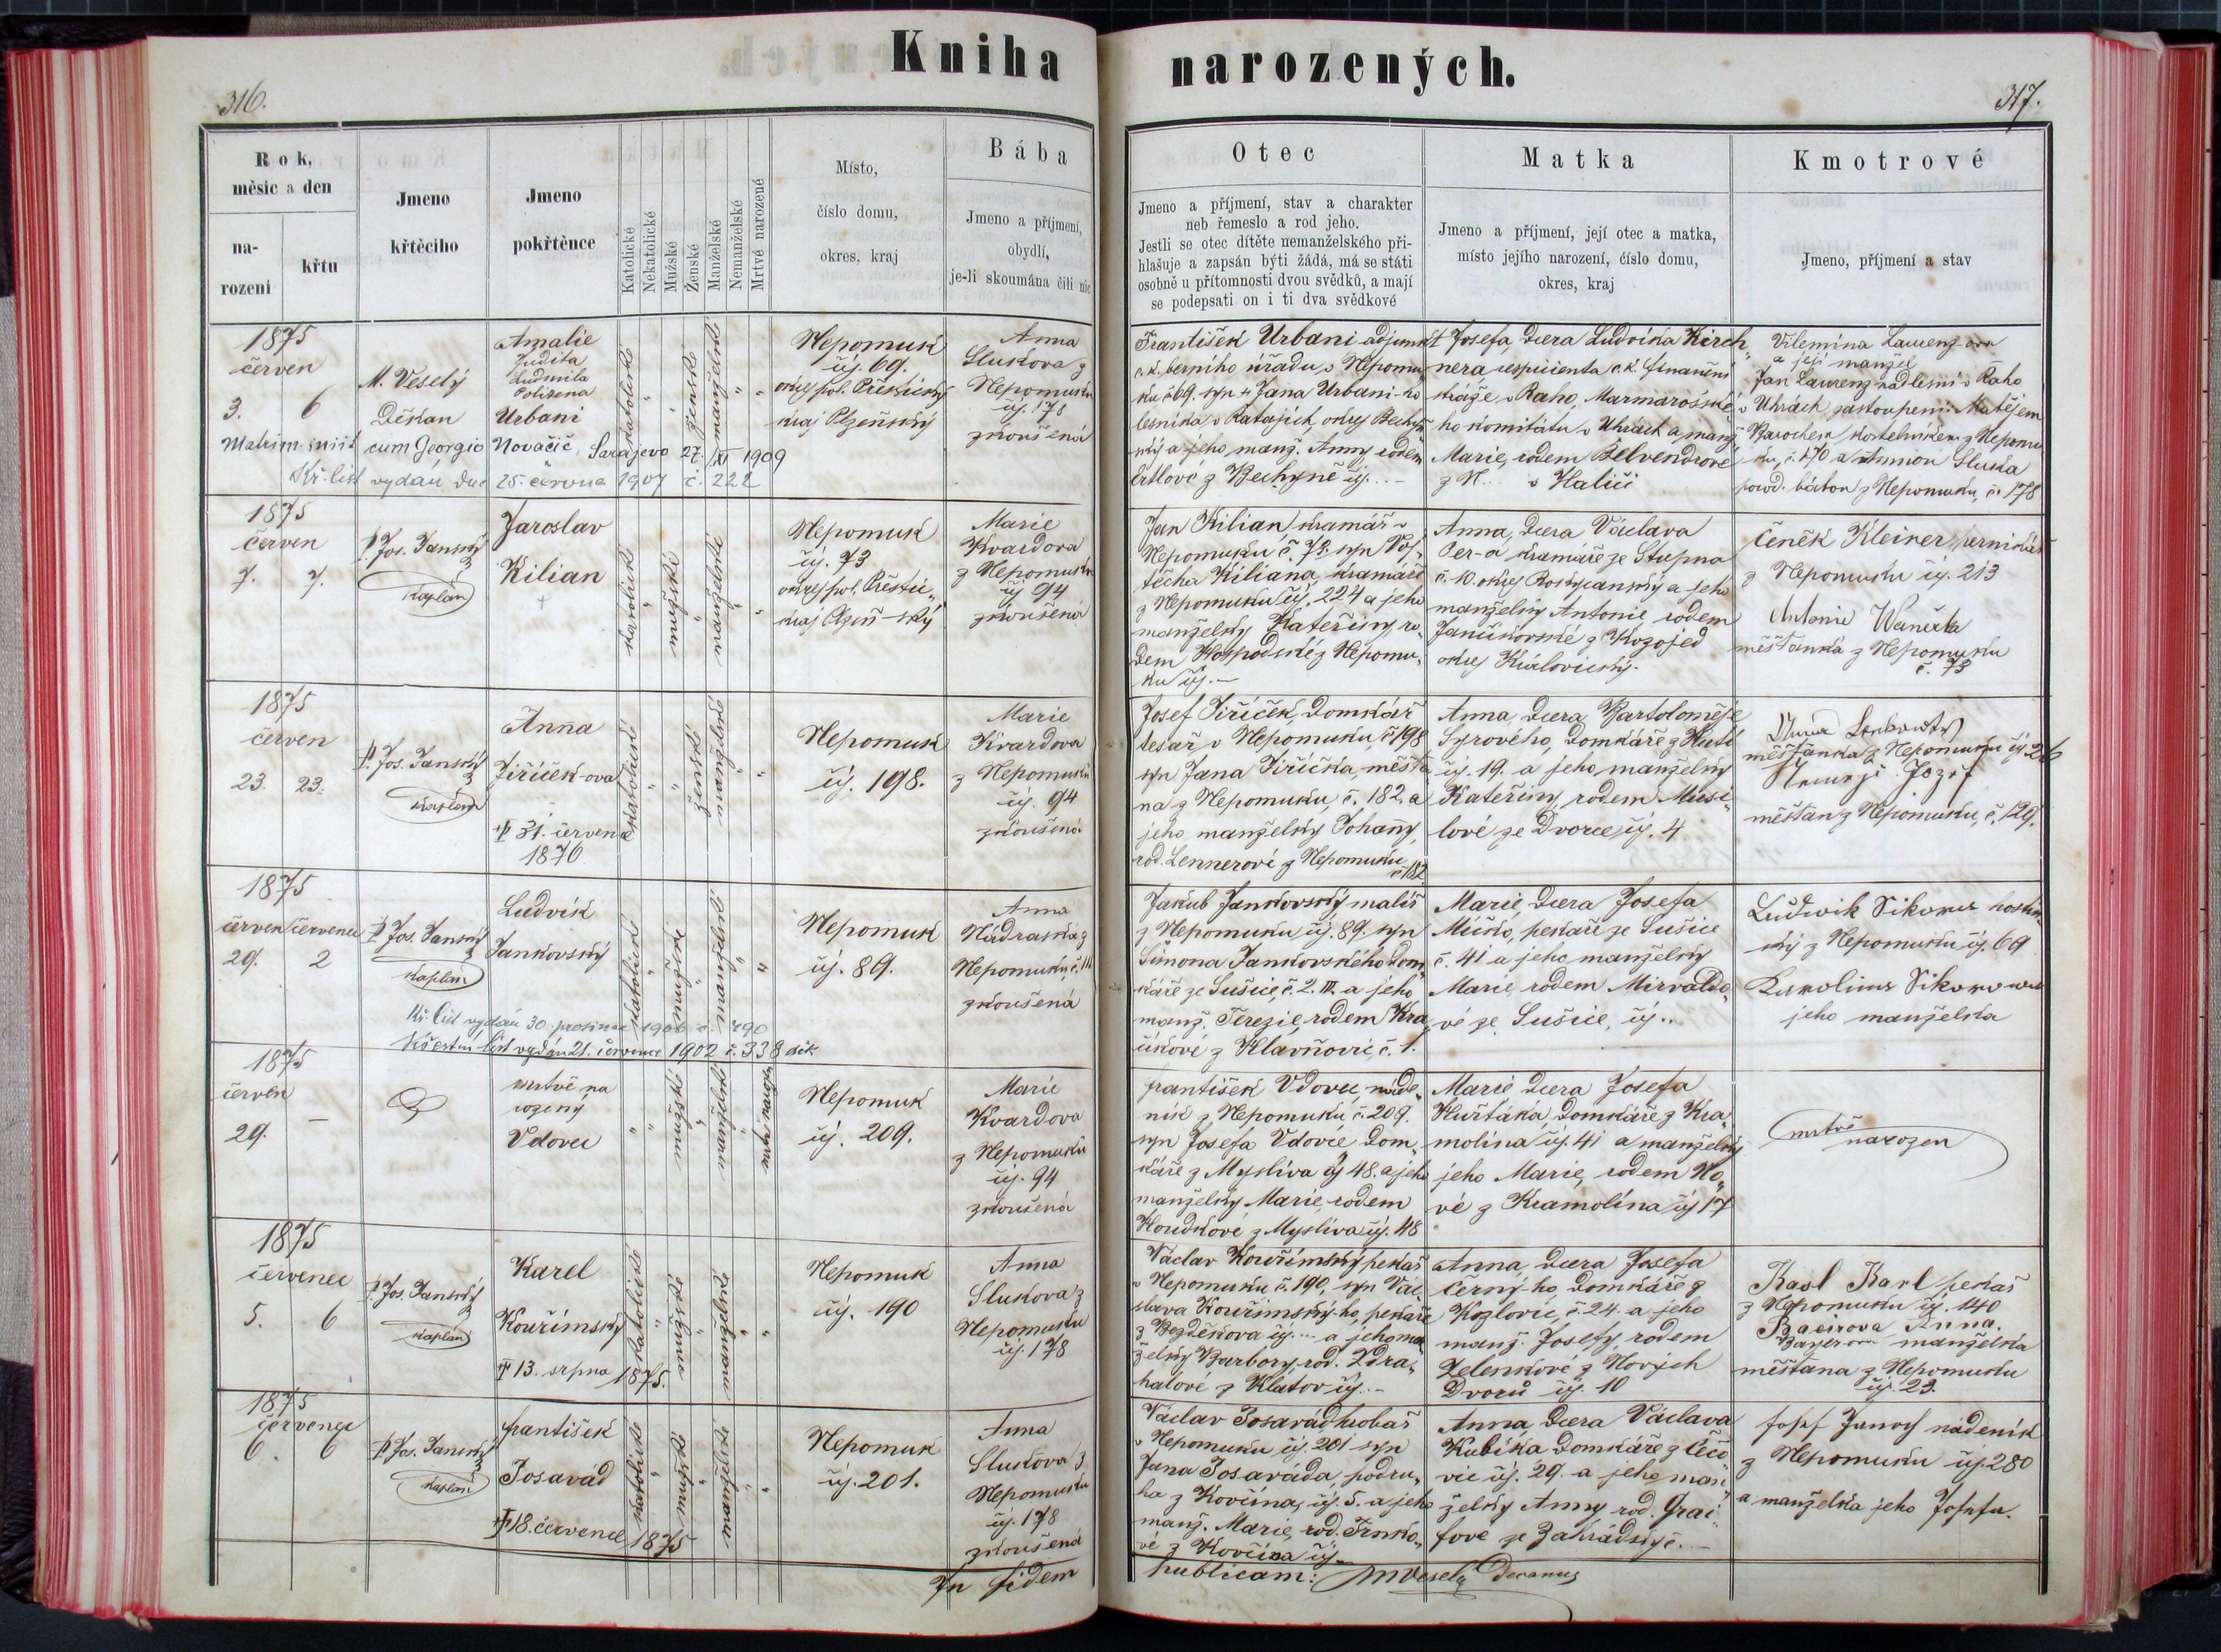 Kniha narozených.
316.
317.
Rok,
měsíc a den
na-
rození
křtu
Jmeno
křtěcího
Jmeno
pokřtěnce
Katolické
Nekatolické
Mužské
Ženské
Manželské
Nemanželské
Mrtvé narozené
Místo,
číslo domu,
okres, kraj
Bába
Jmeno a příjmení,
obydlí,
je-li skoumána čili nic
Otec
Jmeno a příjmení, stav a charakter
neb řemeslo a rod jeho.
Jestli se otec dítěte nemanželského při-
hlašuje a zapsán býti žádá, má se státi
osobně u přítomnosti dvou svědků, a mají
se podepsati on i ti dva svědkové
Matka
Jmeno a příjmení, její otec a matka,
místo jejího narození, číslo domu,
okres, kraj
Kmotrové
Jmeno, příjmení a stav
1875
červen
3. 6
M. Veselý
Děkan
Amalie
Judita
Ludmila
Urbani
katolické
ženské
manželské
Nepomuk
čj. 69.
okres pol. Přeštický
kraj Plzeňský
Anna
Sluková z
Nepomuku
čj. 178
zkoušená
Matrim. iniit cum Georgio Novačič, Sarajevo 27. XI 1909
Kř. list vydán dne 25. června 1907 č. 222
František Urbani adjunkt
c.k. berního úřadu v Nepomu-
ku č 69. syn + Jana Urbani-ho
lesníka v Ratajích, okres Bechyň-
ský a jeho manž. Anny, rodem
Ertlové z Bechyně čj. . . -
Josefa, dcera Ludvíka Kirch-
nera respicienta c.k. finanční
stráže v Raho, Marmarošské-
ho komitátu v Uhrách a manž.
Marie, rodem Belvendrové
z N... v Haliči
Vilemína Laurenz-ova
a její manžel
Jan Laurenz nadlesní v Raho
v Uhrách zastoupeni: Matějem
Barochem, kostelníkem z Nepomu-
ku, č. 170 a Annou Sluka
porod. bábou z Nepomuku, č. 178
1875
červen
7. 7.
P. Jos. Janský
kaplan
Jaroslav
Kilian
+
katolické
mužské
manželské
Nepomuk
čj. 73
okres pol. Přeštic-
kraj Plzeň-ský
Marie
Kvardova
z Nepomuku
čj 94
zkoušená
Jan Kilian, kramář v
Nepomuku, č. 73. syn Voj-
těcha Kiliana, kramáře
z Nepomuku čj. 224 a jeho
manželky Kateřiny ro-
dem Hospodské z Nepomu-
ku čj. -
Anna, dcera Václava
kramáře ze Stupna
č. 10. okres Rokycanský a jeho
manželky Antonie, rodem
z Kozojed
okres Královický.
Čeněk Kleiner, perníkář
z Nepomuku čj. 213
Antonie Waněčka
měšťanka z Nepomuku
č. 73
1875
červen
23. 23.
P. Jos. Janský
kaplan
Anna
Jiříček-ova
+ 31. července
1876
katolické
ženské
manželské
Nepomuk
čj. 198.
Marie
Kvardova
z Nepomuku
čj. 94
zkoušená
Josef Jiříček, domkář
tesař v Nepomuku, č 198
syn Jana Jiříčka, měšťa-
na z Nepomuku, č. 182. a
jeho manželky Johany,
rod. Lennerové z Nepomuku
č 182
Anna, dcera Bartoloměje
Syrového, domkáře z Hutí
čj. 19. a jeho manželky
Kateřiny, rodem Musi-
lové ze Dvorce čj. 4
měšťanka z Nepomuku čj 26
Josef
měšťan z Nepomuku, č. 129.
1875
červen července
29. 2
P. Jos. Janský
kaplan
Ludvík
Jankovský
katolické
mužské
manželské
Nepomuk
čj. 89.
Anna
Nádraská z
Nepomuku, č. 111
zkoušená
Kř. list vydán 30. prosince 1900 č. 490
Křestní list vydán 21. července 1902 č. 338 děk
Jakub Jankovský malíř
z Nepomuku čj. 89. syn
Šimona Jankovského dom-
káře ze Sušice, č. 2. III. a jeho
manž. Terezie, rodem Kra-
z Hlavňovic, č. 1.
Marie, dcera Josefa
pekaře ze Sušice
č. 41 a jeho manželky
Marie, rodem Mirvaldo-
vé ze Sušice, čj..
Ludwik Sikora hostin-
ský z Nepomuku čj. 69
Karolina Sikorova
jeho manželka
1875
červen
29. -
mrtvě na
rozený
Vdovec
mužské
manželské
mrtvě narozené
Nepomuk
čj. 209.
Marie
Kvardova
z Nepomuku
čj. 94
zkoušená
František Vdovec, náde-
ník z Nepomuku č. 209.
syn Josefa Vdovce dom-
káře z Myslíva čj 48. a jeho
manželky Marie, rodem
Houdkové z Myslíva čj. 48
Marie dcera Josefa
domkáře z Kra-
molína čj. 41 a manželky
jeho Marie, rodem No-
vé z Kramolína čj 17
mrtvě
narozen
1875
červenec
5. 6
P. Jos. Janský
kaplan
Karel
Kouřimský
+ 13. srpna 1875.
katolické
mužské
manželské
Nepomuk
čj. 190
Anna
Slukova z
Nepomuku
čj. 178
Václav Kouřimský pekař
v Nepomuku č. 190, syn Vác-
slava Kouřimský-ho, pekaře
z Bezděkova čj. . . a jeho man-
želky Barbory, rod. Zdra-
halové z Klatov čj. -
Anna, dcera Josefa
Černý-ho, domkáře z
Kozlovic, č. 24. a jeho
manž. Josefy, rodem
Zelenkové z Nových
Dvorů čj. 10
Karl pekař
z Nepomuku čj. 140
Baeirova Anna.
manželka
měšťana z Nepomuku
čj. 23.
1875
červenec
6. 6
P. Jos. Janský
kaplan
František
Posavád
+ 18. července 1875
katolické
mužské
manželské
Nepomuk
čj. 201.
Anna
Slukova z
Nepomuku
čj. 178
zkoušená
Václav Posavád hrobař
v Nepomuku čj. 201 syn
Jana Posaváda, podru-
ha z Kovčína, čj. 5. a jeho
manž. Marie, rod. Trnko-
vé z Kovčína čj.
Anna, dcera Václava
Kubíka domkáře z Čečo-
vic čj. 29. a jeho man-
želky Anny rod. Grai-
fové ze Zahrádky č. -
Josef Janoch nádeník
z Nepomuku čj. 280
a manželka jeho Josefa.
In fidem
publicam: M Veselý Decanus